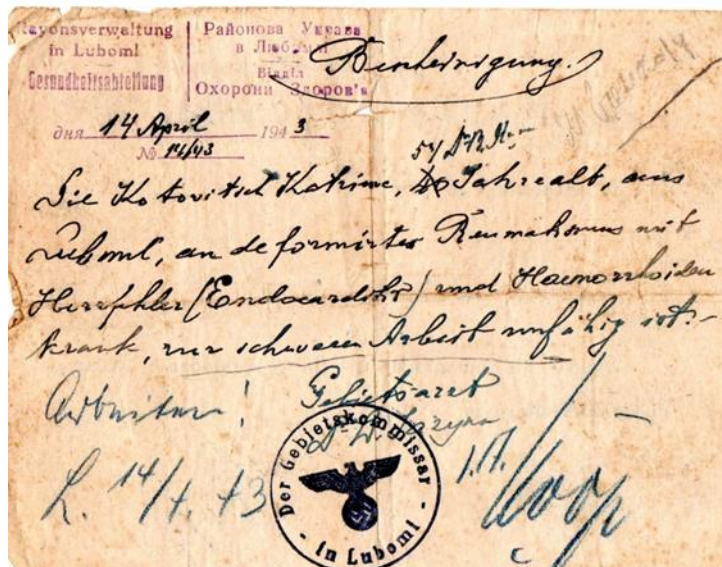 Rayonsverwaltung
in Luboml
Gesundheitsabteilung
Районова Управа
в Любомлі
Відділ
Охорони Здоров'я
Bescheinigung.
дня 14 April 1943
№ 14/43
54
Die Kotovitsch Katrine, 40 Jahre alt, aus
Luboml, an deformirter Reumatismus mit
Herzfehler (Endocarditis) und Haemorrhoiden
krank, zur schweren Arbeit unfähig ist.-
Arbeiten! Gebietsarzt
L. 14/4. 43 I.A.
Der Gebietskommissar
- in Luboml -